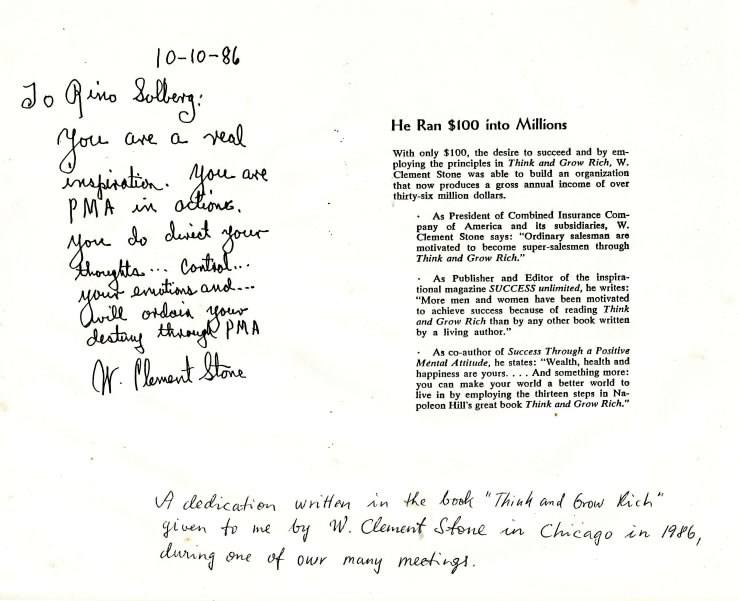 10-10-86
To Rino Solberg:
You are a real
inspiration. You are
PMA in actions.
You do direct your
thoughts... Control...
your emotions and...
will ordain your
destiny through PMA
W. Clement Stone
He Ran $100 into Millions
With only $100, the desire to succeed and by em-
ploying the principles in Think and Grow Rich, W.
Clement Stone was able to build an organization
that now produces a gross annual income of over
thirty-six million dollars.
· As President of Combined Insurance Com-
pany of America and its subsidiaries, W.
Clement Stone says: "Ordinary salesman are
motivated to become super-salesmen through
Think and Grow Rich."
· As Publisher and Editor of the inspira-
tional magazine SUCCESS unlimited, he writes:
"More men and women have been motivated
to achieve success because of reading Think
and Grow Rich than by any other book written
by a living author."
· As co-author of Success Through a Positive
Mental Attitude, he states: "Wealth, health and
happiness are yours. . . . And something more:
you can make your world a better world to
live in by employing the thirteen steps in Na-
poleon Hill's great book Think and Grow Rich."
A dedication written in the book "Think and Grow Rich"
given to me by W. Clement Stone in Chicago in 1986,
during one of owr many meetings.